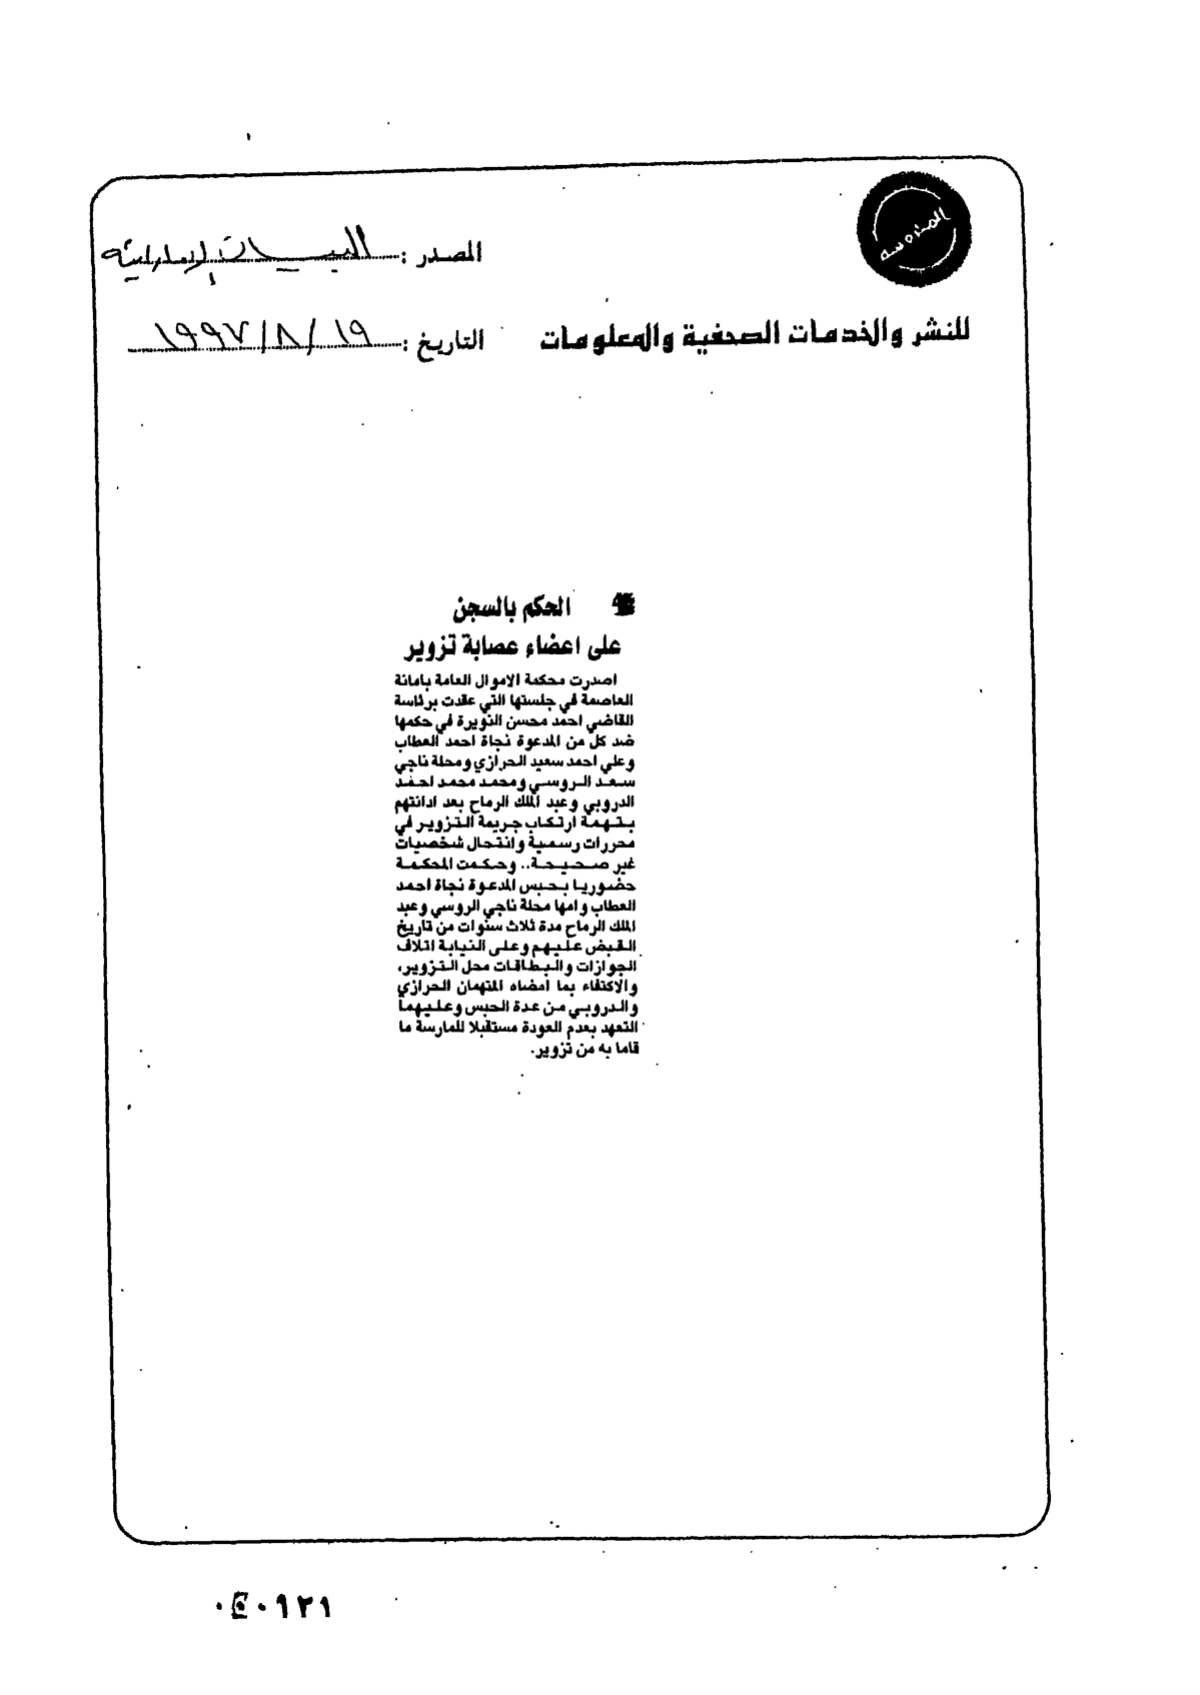 المحروسة
المصدر : البيان الإماراتية
للنشر والخدمات الصحفية والمعلومات
التاريخ : ١٩ / ٨ / ١٩٩٧
الحكم بالسجن
على اعضاء عصابة تزوير
اصدرت محكمة الاموال العامة بامانة
العاصمة في جلستها التي عقدت برئاسة
القاضي احمد محسن النويرة في حكمها
ضد كل من المدعوة نجاة احمد العطاب
وعلي احمد سعيد الحرازي ومحلة ناجي
سعد الروسي ومحمد محمد احمد
الدروبي وعبد الملك الرماح بعد ادانتهم
بتهمة ارتكاب جريمة التزوير في
محررات رسمية وانتحال شخصيات
غير صحيحة.. وحكمت المحكمة
حضوريا بحبس المدعوة نجاة احمد
العطاب وامها محلة ناجي الروسي وعبد
الملك الرماح مدة ثلاث سنوات من تاريخ
القبض عليهم وعلى النيابة اتلاف
الجوازات والبطاقات محل التزوير،
والاكتفاء بما امضاه المتهمان الحرازي
والدروبي من عدة الحبس وعليهما
التعهد بعدم العودة مستقبلا للمارسة ما
قاما به من تزوير.
٠٩٢١